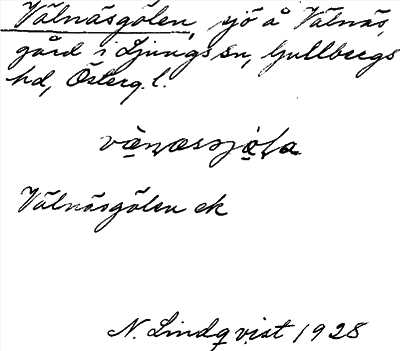 Välnäsgölen, sjö å Välnäs,
gård i Ljungs sn, Gullbergs
hd, Österg. l.
Välnäsgölen ek
N. Lindqvist 1928